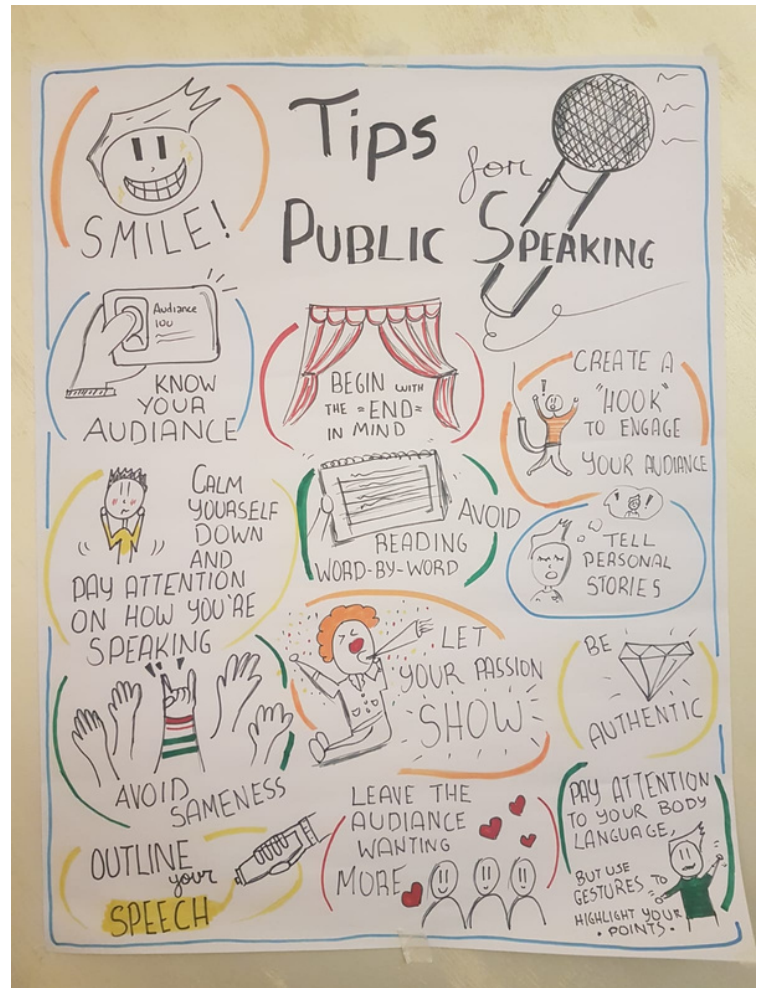 Tips
for
PUBLIC SPEAKING
SMILE!
Audiance
101
KNOW
YOUR
AUDIANCE
BEGIN WITH
THE "END"
IN MIND
CREATE A
"HOOK"
TO ENGAGE
YOUR AUDIANCE
CALM
YOURSELF
DOWN
AND
PAY ATTENTION
ON HOW YOU'RE
SPEAKING
AVOID
READING
WORD-BY-WORD
!
TELL
PERSONAL
STORIES
LET
YOUR PASSION
SHOW
BE
AUTHENTIC
AVOID
SAMENESS
OUTLINE
your
SPEECH
LEAVE THE
AUDIANCE
WANTING
MORE
PAY ATTENTION
TO YOUR BODY
LANGUAGE,
BUT USE
GESTURES TO
HIGHLIGHT YOUR
• POINTS •